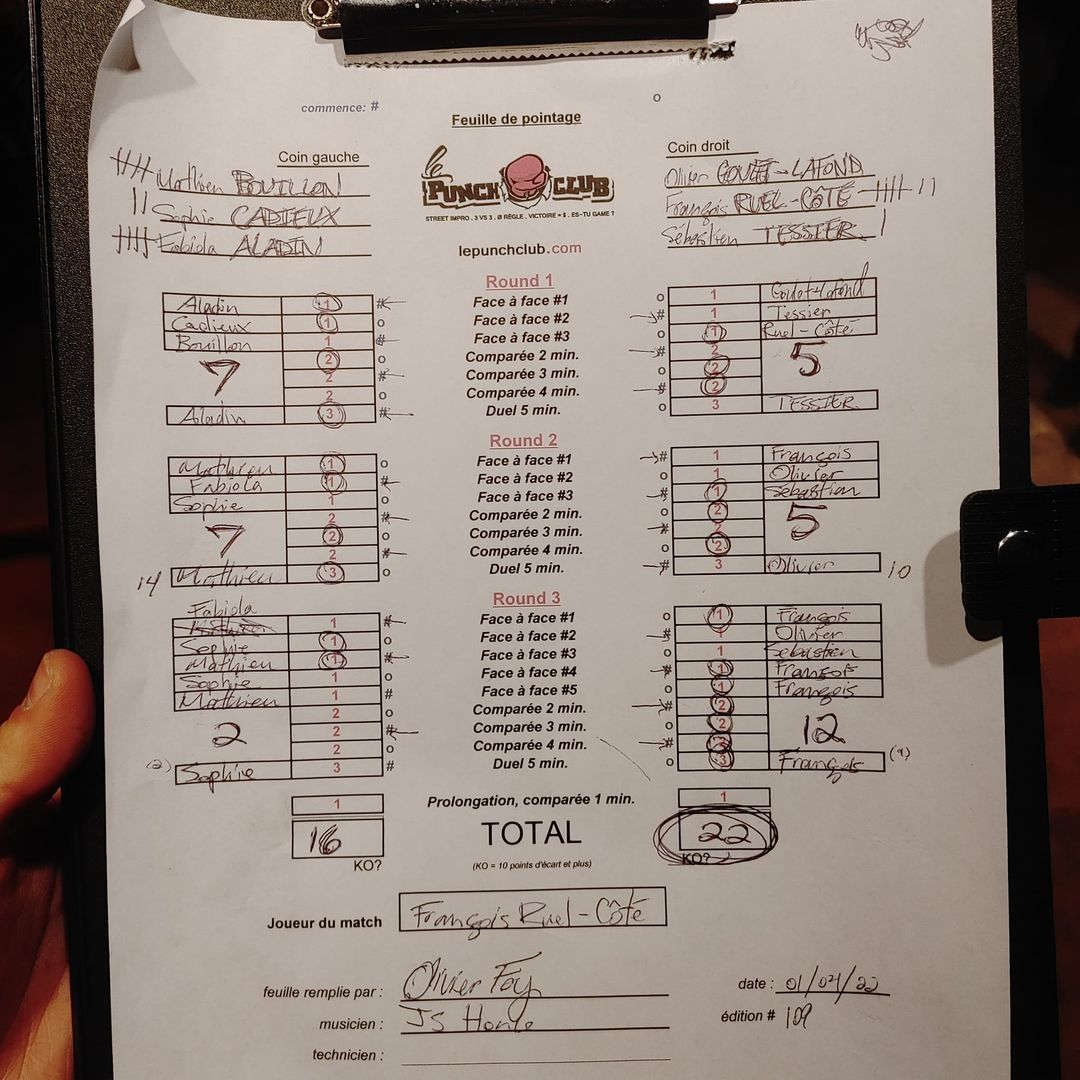 commence: # o
Feuille de pointage
Coin gauche Coin droit
Mathieu BOUILLON Olivier GOULET-LAFOND
Sophie CADIEUX François RUEL-CÔTÉ
Fabiola ALADIN Sébastien TESSIER
le PUNCH CLUB
STREET IMPRO . 3 VS 3 . Ø RÈGLE . VICTOIRE = $ . ES-TU GAME ?
lepunchclub.com
Round 1
Aladin 1 # Face à face #1 o 1 Goulet-Lafond
Cadieux 1 o Face à face #2 # 1 Tessier
Bouillon 1 # Face à face #3 o 1 Ruel-Côté
7 2 o Comparée 2 min. # 2 5
2 # Comparée 3 min. o 2
2 o Comparée 4 min. # 2
Aladin 3 # Duel 5 min. o 3 TESSIER
Round 2
Mathieu 1 o Face à face #1 # 1 François
Fabiola 1 # Face à face #2 o 1 Olivier
Sophie Face à face #3 # 1 Sébastian
7 2 # Comparée 2 min. o 2 5
2 o Comparée 3 min. # 2
2 # Comparée 4 min. o 2
14 Mathieu 3 o Duel 5 min. # 3 Olivier 10
Round 3
Fabiola 1 # Face à face #1 o 1 François
Sophie 1 o Face à face #2 # Olivier
Mathieu 1 # Face à face #3 o 1 Sebastien
Sophie 1 o Face à face #4 # 1 François
Mathieu 1 # Face à face #5 o 1 François
2 2 o Comparée 2 min. # 2 12
2 # Comparée 3 min. o 2
2 o Comparée 4 min. # 2
(2) Sophie 3 # Duel 5 min. o 3 François
1 Prolongation, comparée 1 min. 1
16 TOTAL 22
KO? (KO = 10 points d'écart et plus) KO?
Joueur du match François Ruel-Côté
feuille remplie par : Olivier Foy date : 01/04/22
musicien : JS édition # 109
technicien :